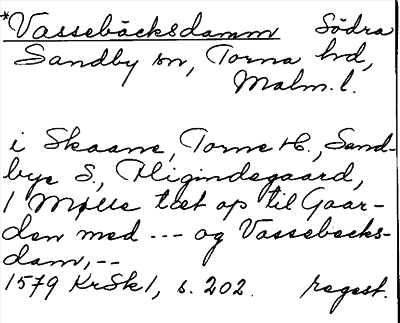 *Vassebäcksdamm Södra
Sandby sn, Torna hd,
Malm. l.
i Skaane, Torne H., Sand-
bye S., Fligindegaard,
1 Mølle tæt op til Gaar-
den med --- og Vassebecks-
dam, --
1579 KrSk 1, s. 202. regest.